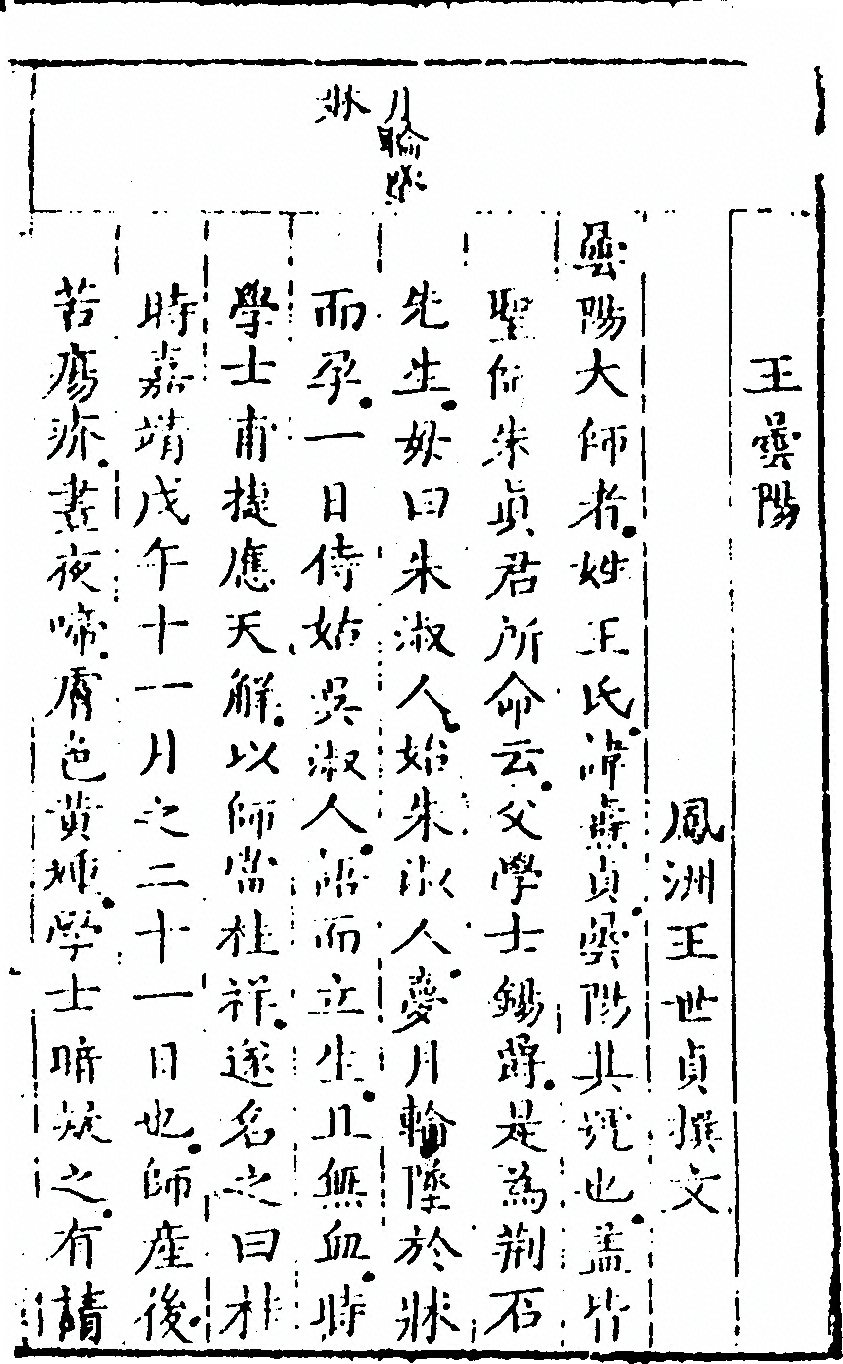 月輪墜
牀
王曇陽
鳳洲王世貞撰文
曇陽大師者姓王氏諱燾貞曇陽其號也盖皆
聖師朱眞君所命云父學士錫爵是為荆石
先生母曰朱淑人始朱淑人夢月輪墜於牀
而孕一日侍姑吳淑人語而立生且無血時
學士甫捷應天觧以師當桂祥遂名之曰桂
時嘉靖戊午十一月之二十一日也師産後
苦瘍疥晝夜啼膚色黄學士暗疑之有請